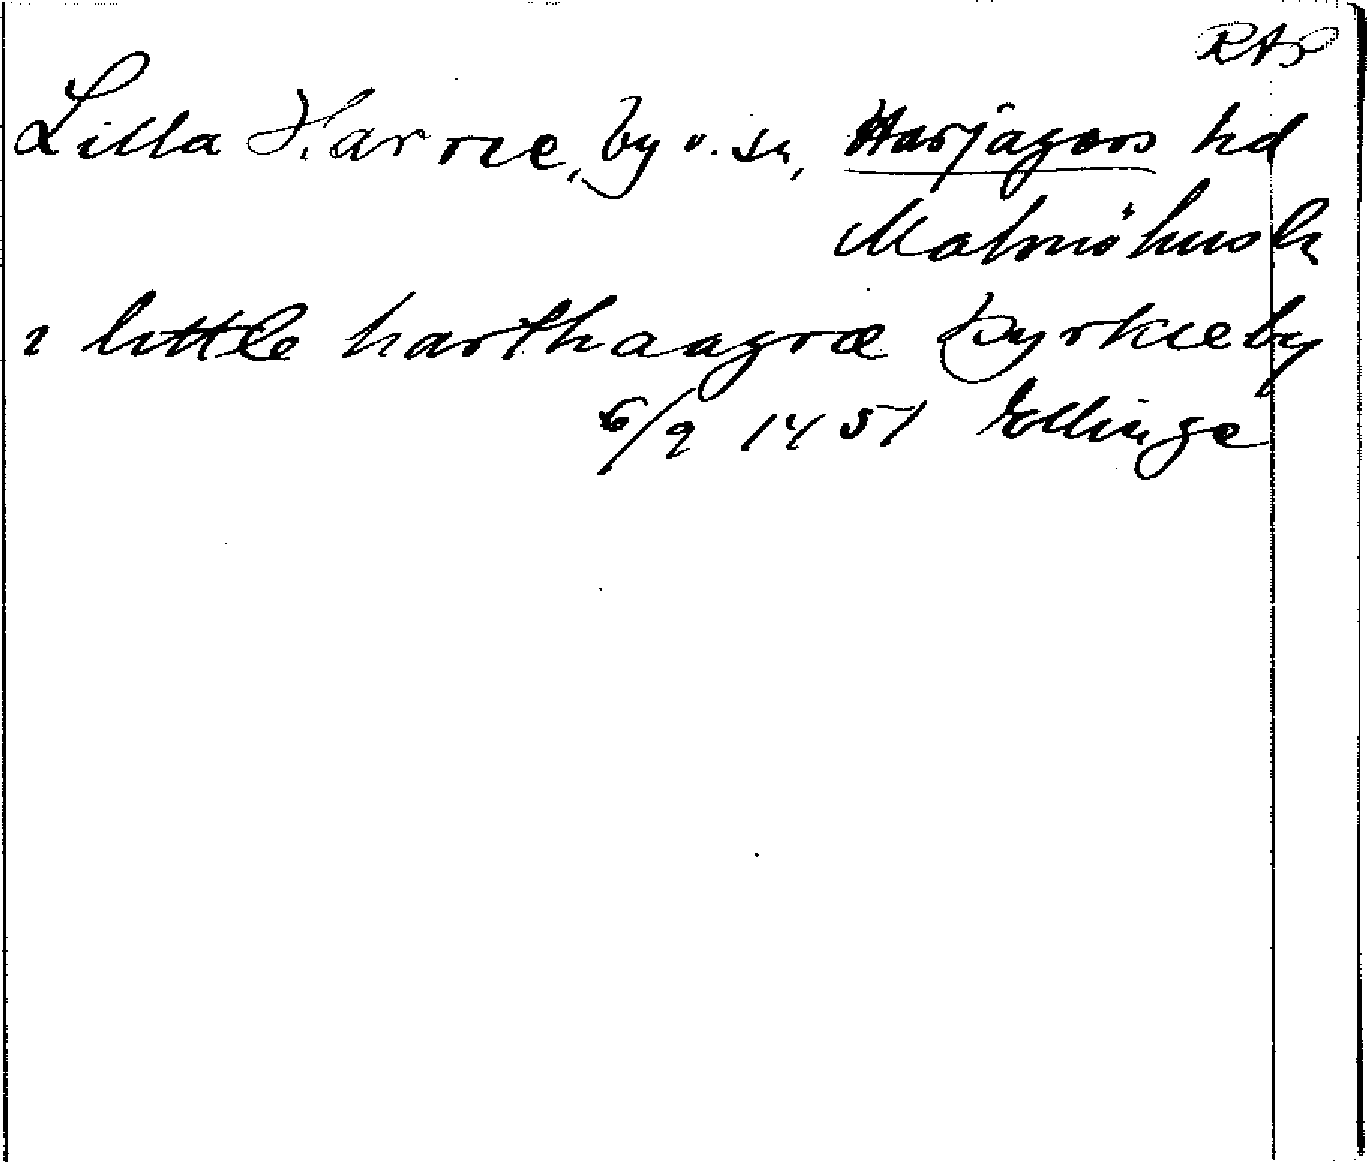 RAP
Lilla Harrie, by o. sn, Harjagers hd
Malmöhus l.
i little harthaagræ kyrkieby
6/9 1451 Ellinge